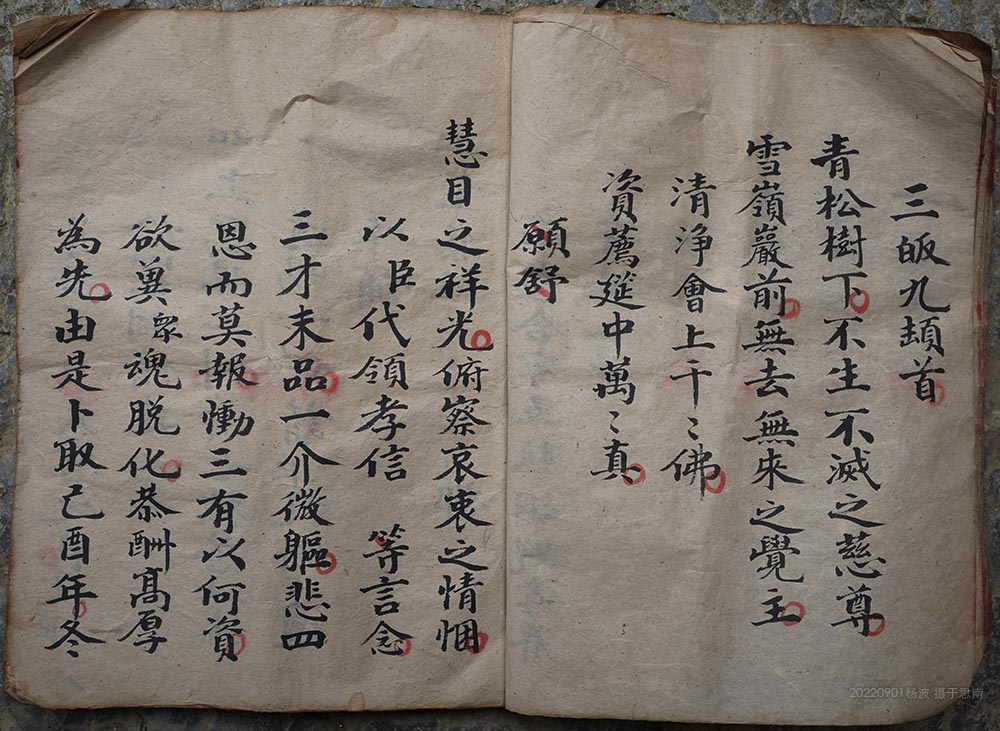 三皈九頓首
青松樹下不生不滅之慈尊
雪嶺巖前無去無來之覺主
清浄會上千〻佛
資薦筵中萬〻真
願舒
慧目之祥光俯察哀衷之情悃
以臣代領孝信 等言念
三才末品一介微軀悲四
恩而莫報慟三有以何資
欲冀眾魂脱化恭酬高厚
為先由是卜取己酉年冬
20220901杨波 摄于思南